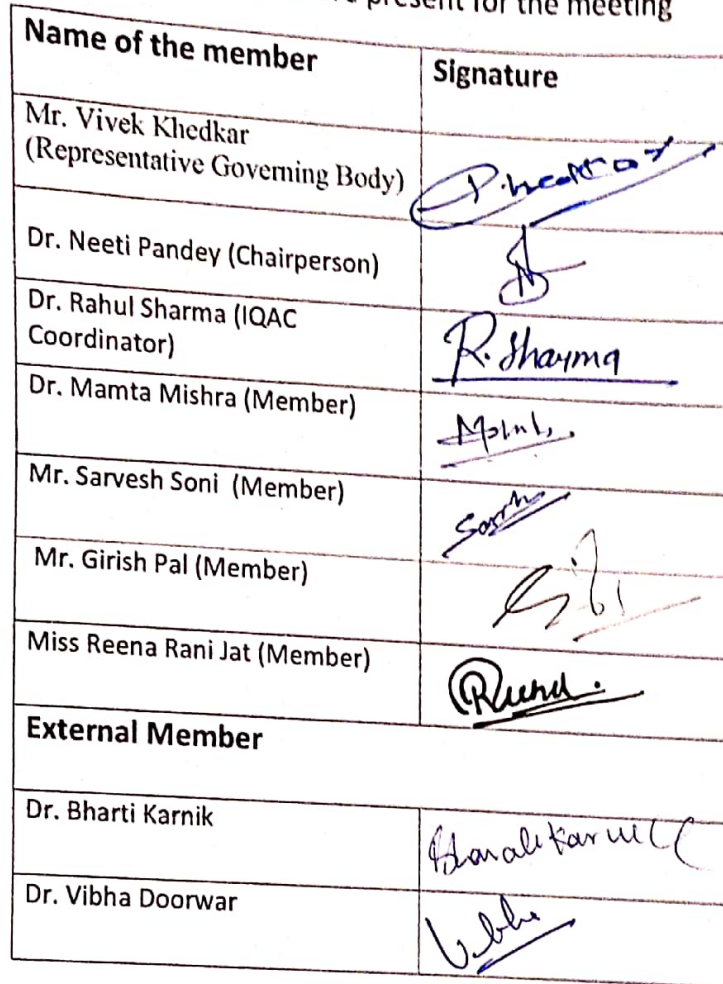 present for the meeting
Name of the member Signature
Mr. Vivek Khedkar
(Representative Governing Body)
Dr. Neeti Pandey (Chairperson)
Dr. Rahul Sharma (IQAC
Coordinator) R. Sharma
Dr. Mamta Mishra (Member)
Mr. Sarvesh Soni (Member)
Mr. Girish Pal (Member)
Miss Reena Rani Jat (Member)
External Member
Dr. Bharti Karnik
Dr. Vibha Doorwar